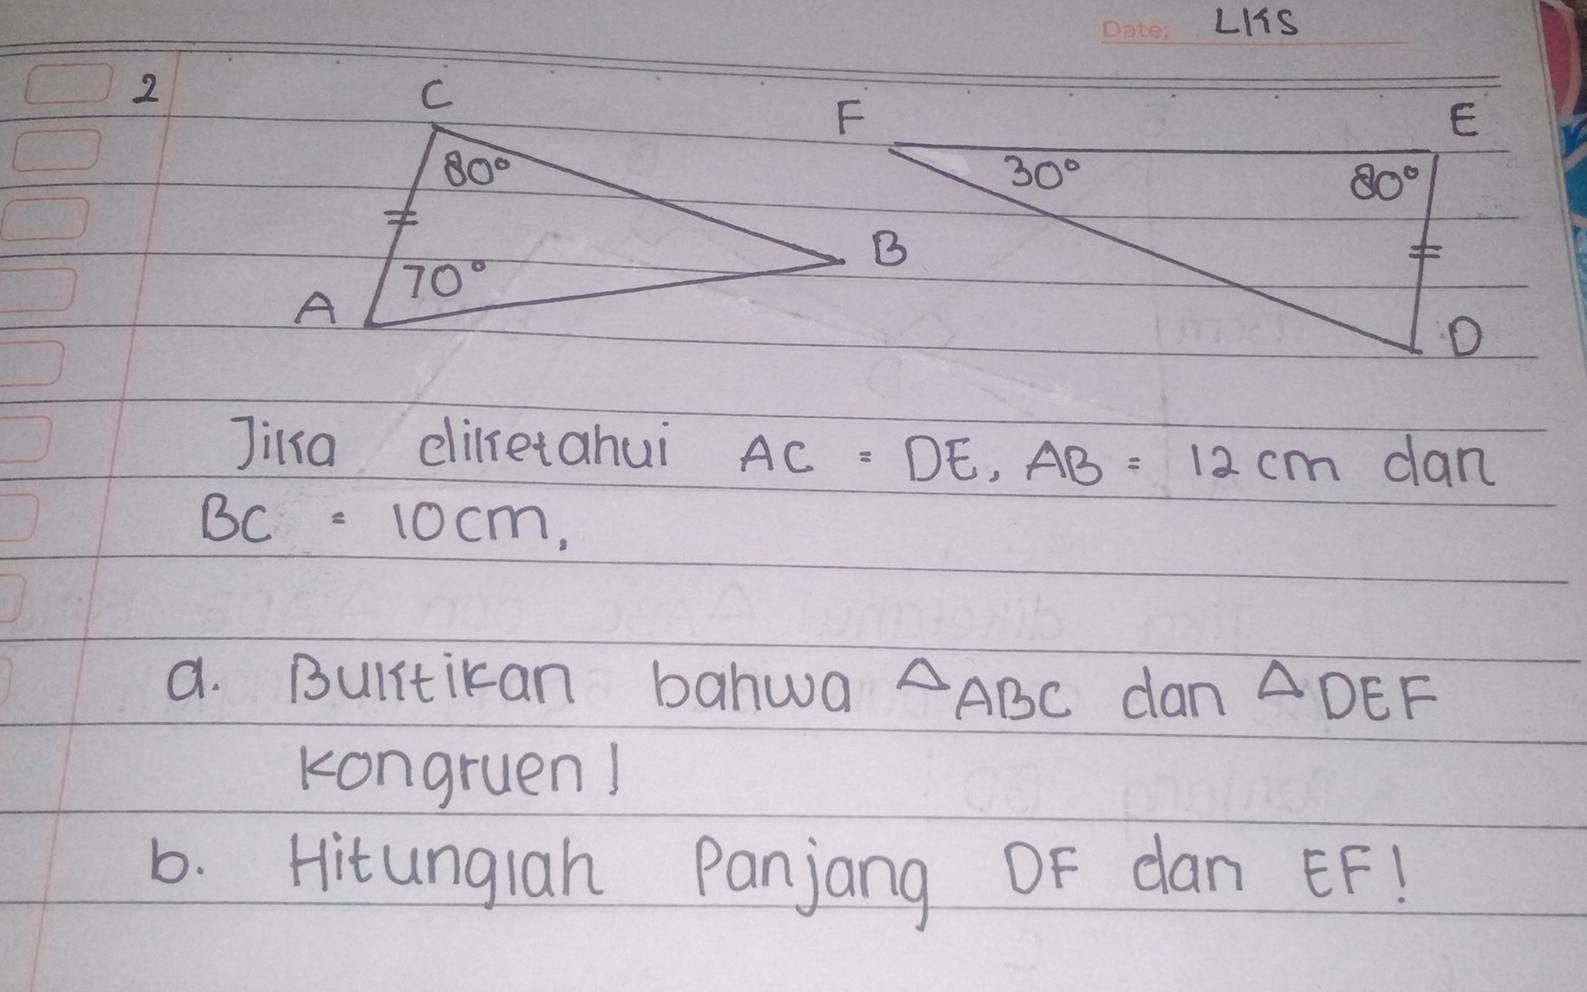 Date: LKS
2
C
F
E
80°
30°
80°
B
70°
A
D
Jika diketahui AC = DE, AB = 12 cm dan
BC = 10 cm,
a. Buktikan bahwa △ABC dan △DEF
kongruen!
b. Hitunglah Panjang DF dan EF!